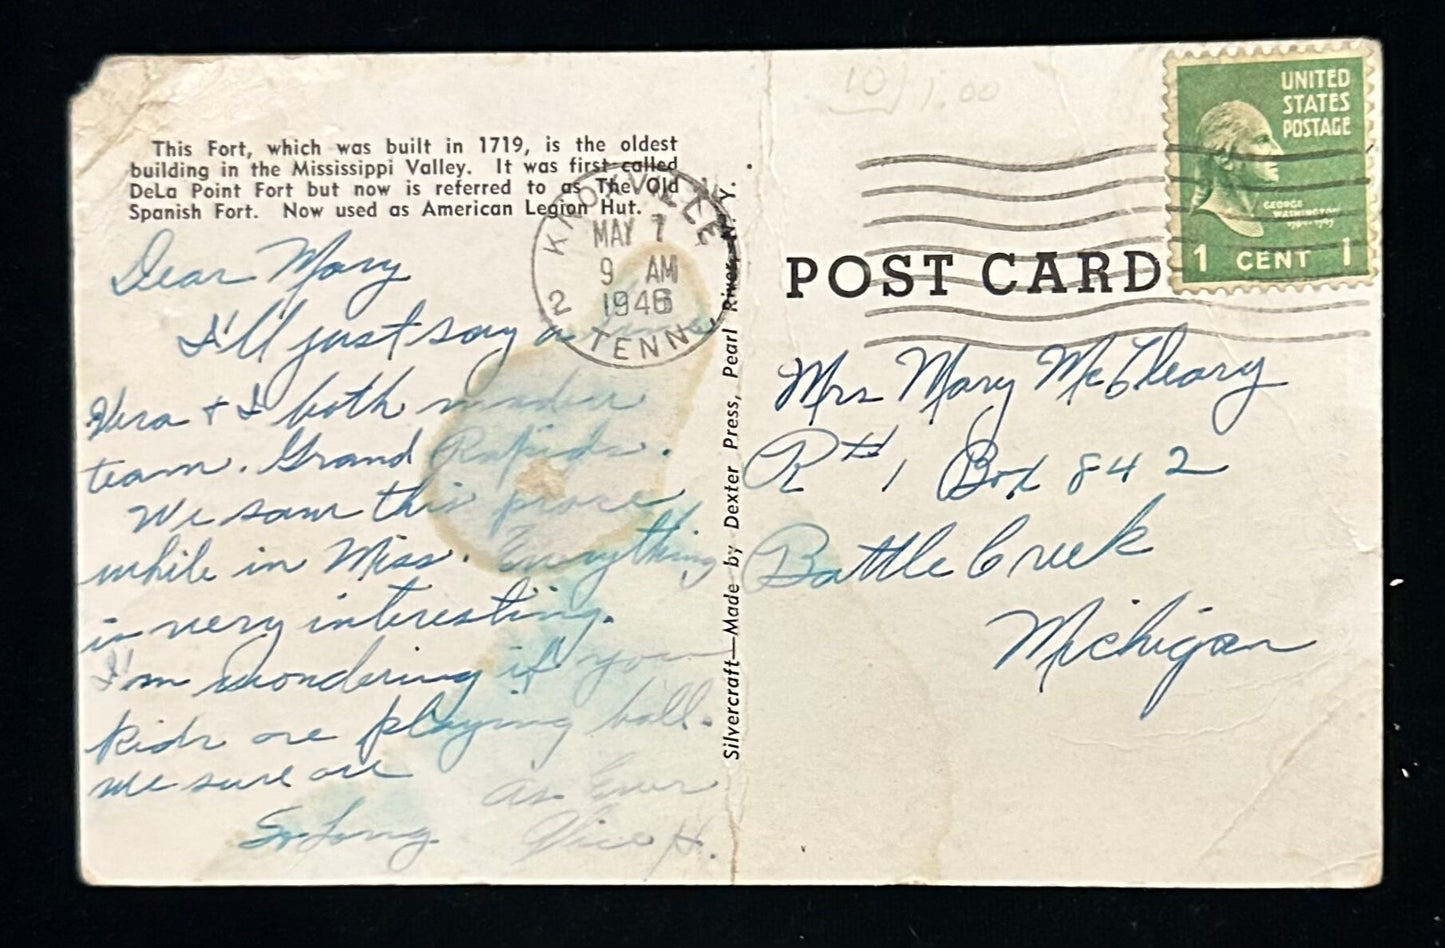 This Fort, which was built in 1719, is the oldest
building in the Mississippi Valley. It was first called
DeLa Point Fort but now is referred to as The Old
Spanish Fort. Now used as American Legion Hut.
Dear Mary
I'll just say a
Vera + I both made
team. Grand Rapids.
We saw this place
while in Miss. Everything
is very interesting.
I'm wondering if you
kids are playing ball.
we sure are
So Long
As Ever
H.
KNOXVILLE
MAY 7
9 AM
1946
2 TENN.
Silvercraft—Made by Dexter Press, Pearl River, N. Y.
10) 1.00
UNITED
STATES
POSTAGE
GEORGE
WASHINGTON
1 CENT 1
POST CARD
Mrs Mary McCleary
R# 1 Box 842
Battle Creek
Michigan